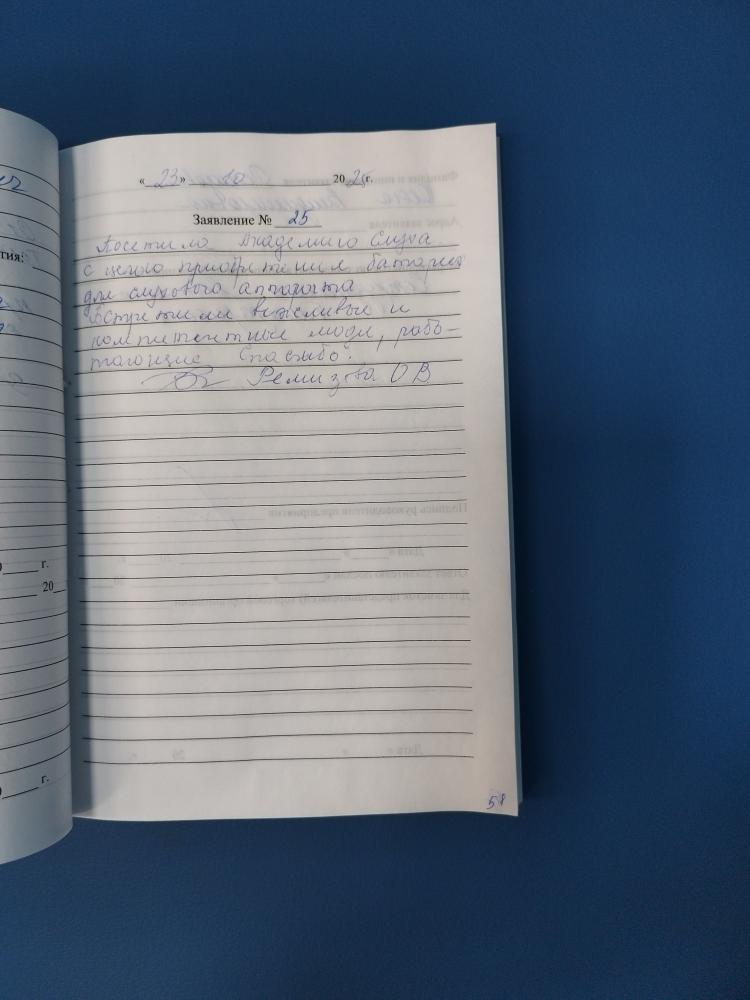 « 23 » 10 2025г.
Заявление № 25
Посетила Академию Слуха
с целью приобретения батареек
для слухового аппарата.
Встретили вежливые и
компетентные люди, рабо-
тающие. Спасибо.
Ремизова О В
тия:
г.
20
г.
58